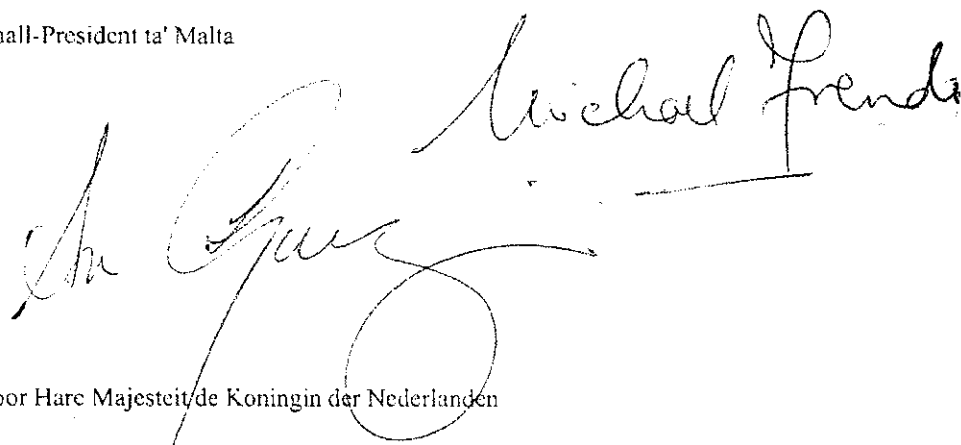 hall-President ta' Malta
Michael Frendo
oor Hare Majesteit de Koningin der Nederlanden